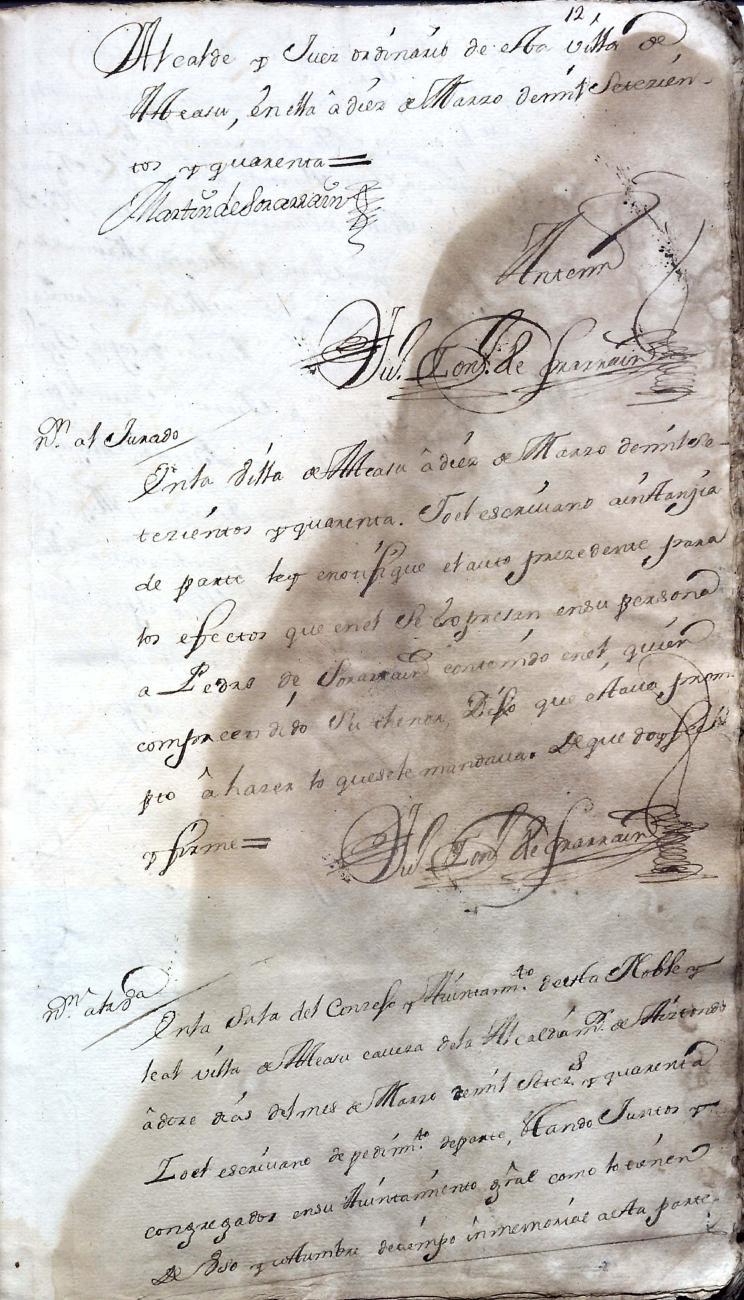 12
Alcalde y Juez ordinario de esta villa de
Aleasu, en ella â diez de Marzo de mil Setezien-
tos y quarenta=
Martin de Sorarrain
Antemi
Ju.º de Sorarrain
n.on al Jurado
En la Villa de Aleasu â diez de Marzo de mil se-
tezientos y quarenta. Yo el escrivano a instanzia
de parte ley e notifique el auto prezedente para
los efectos que en el se expresan en su persona
a Pedro de Sorarrain contenido en el, quien
comprendido su thenor, Dijo que estava prom
pto â hazer lo que se le mandava. De que doy fee
y firme=
Ju.º de Sorarrain
n.on a la va
En la Sala del Conzejo y Aiuntam.to de esta Noble y
leal villa de Aleasu cavera de la Alcaldia m.or de Aiztondo
â doze dias del mes de Marzo de mil Setez.s y quarenta
Yo el escrivano de pedim.to de parte, estando Juntos y
congregados en su Aiuntamiento gral como lo tienen
De Uso y costumbre de tiempo inmemorial a esta parte